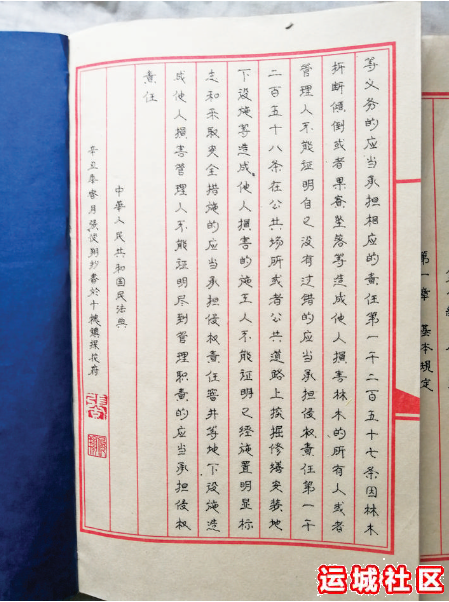 第一章 基本规定
等义务的应当承担相应的责任第一千二百五十七条因林木
折断倾倒或者果实坠落等造成他人损害林木的所有人或者
管理人不能证明自己没有过错的应当承担侵权责任第一千
二百五十八条在公共场所或者公共道路上挖掘修缮安装地
下设施等造成他人损害的施工人不能证明已经施置明显标
志和采取安全措施的应当承担侵权责任窨井等地下设施造
成他人损害管理人不能证明尽到管理职责的应当承担侵权
责任
中華人民共和国民法典
辛丑年月抄書於鎮探花府
运城社区